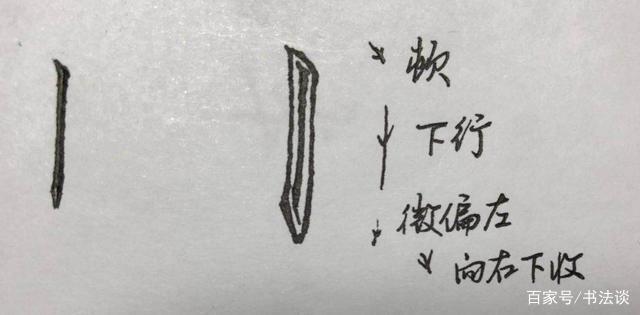 顿
下行
微偏左
向右下收
百家号/书法谈